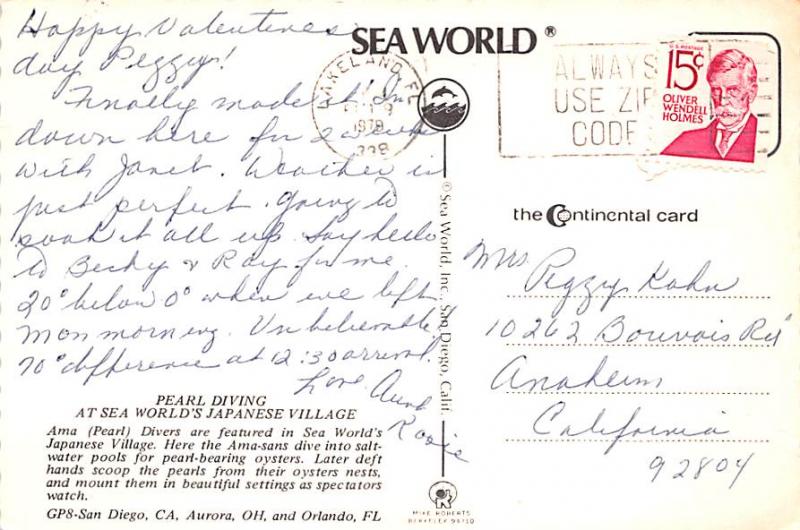 Happy Valentines
day Peggy!
Finally made it. I'm
down here for a week
with Janet. Weather is
just perfect. Going to
soak it all up. Say hello
to Becky & Ray for me.
20° below 0° when we left
Mon morning. Unbelievable,
70° difference at 12:30 arrival.
Love Aunt
Rosie
PEARL DIVING
AT SEA WORLD'S JAPANESE VILLAGE
Ama (Pearl) Divers are featured in Sea World's
Japanese Village. Here the Ama-sans dive into salt-
water pools for pearl-bearing oysters. Later deft
hands scoop the pearls from their oysters nests,
and mount them in beautiful settings as spectators
watch.
GP8-San Diego, CA, Aurora, OH, and Orlando, FL
SEA WORLD®
LAKELAND, FL
1979
338
ALWAYS
USE ZIP
CODE
U.S. POSTAGE
15¢
OLIVER
WENDELL
HOLMES
© Sea World, Inc., San Diego, Calif.
the Continental card
Mrs Peggy Kahn
10262 Bouvais Rd
Anaheim
California
92804
MIKE ROBERTS
BERKELEY 94710